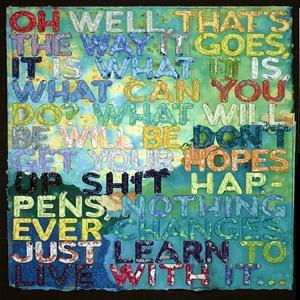 OH WELL, THAT'S
THE WAY IT GOES,
IT IS WHAT IT IS,
WHAT CAN YOU
DO? WHAT WILL
BE WILL BE, DON'T
GET YOUR HOPES
UP, SHIT HAP-
PENS, NOTHING
EVER CHANGES
JUST LEARN TO
LIVE WITH IT...